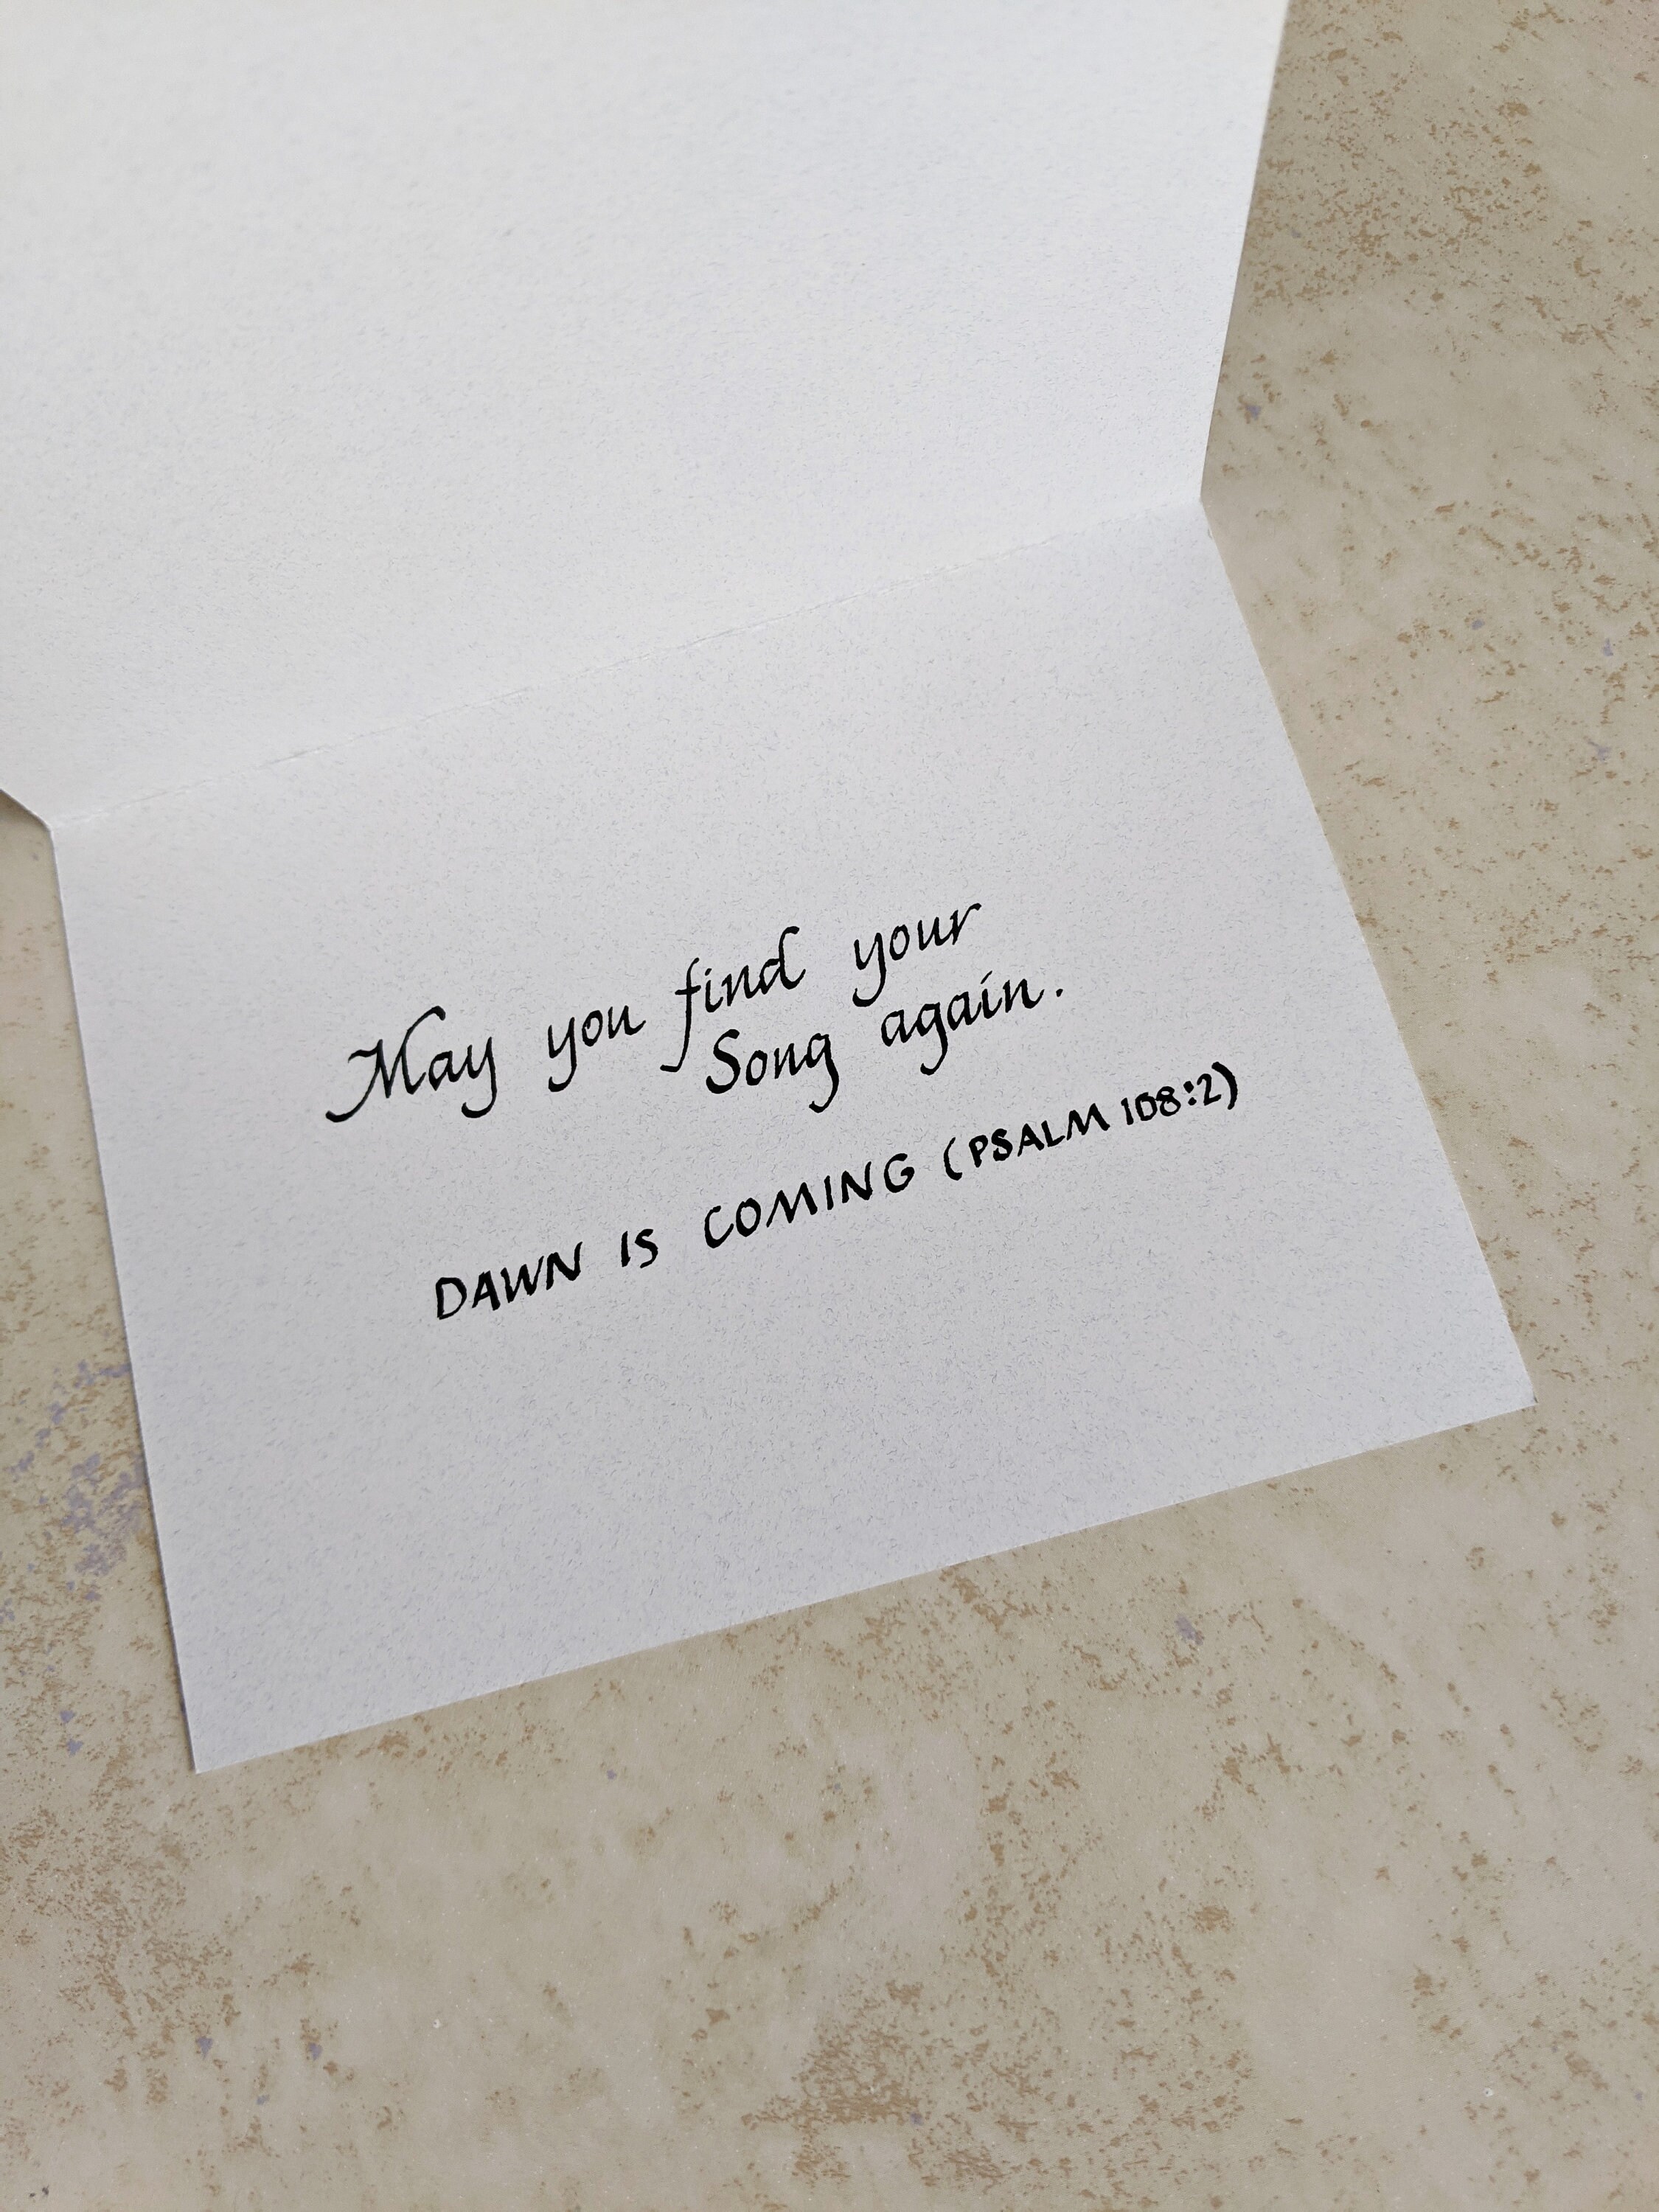 May you find your
Song again.
DAWN IS COMING (PSALM 108:2)